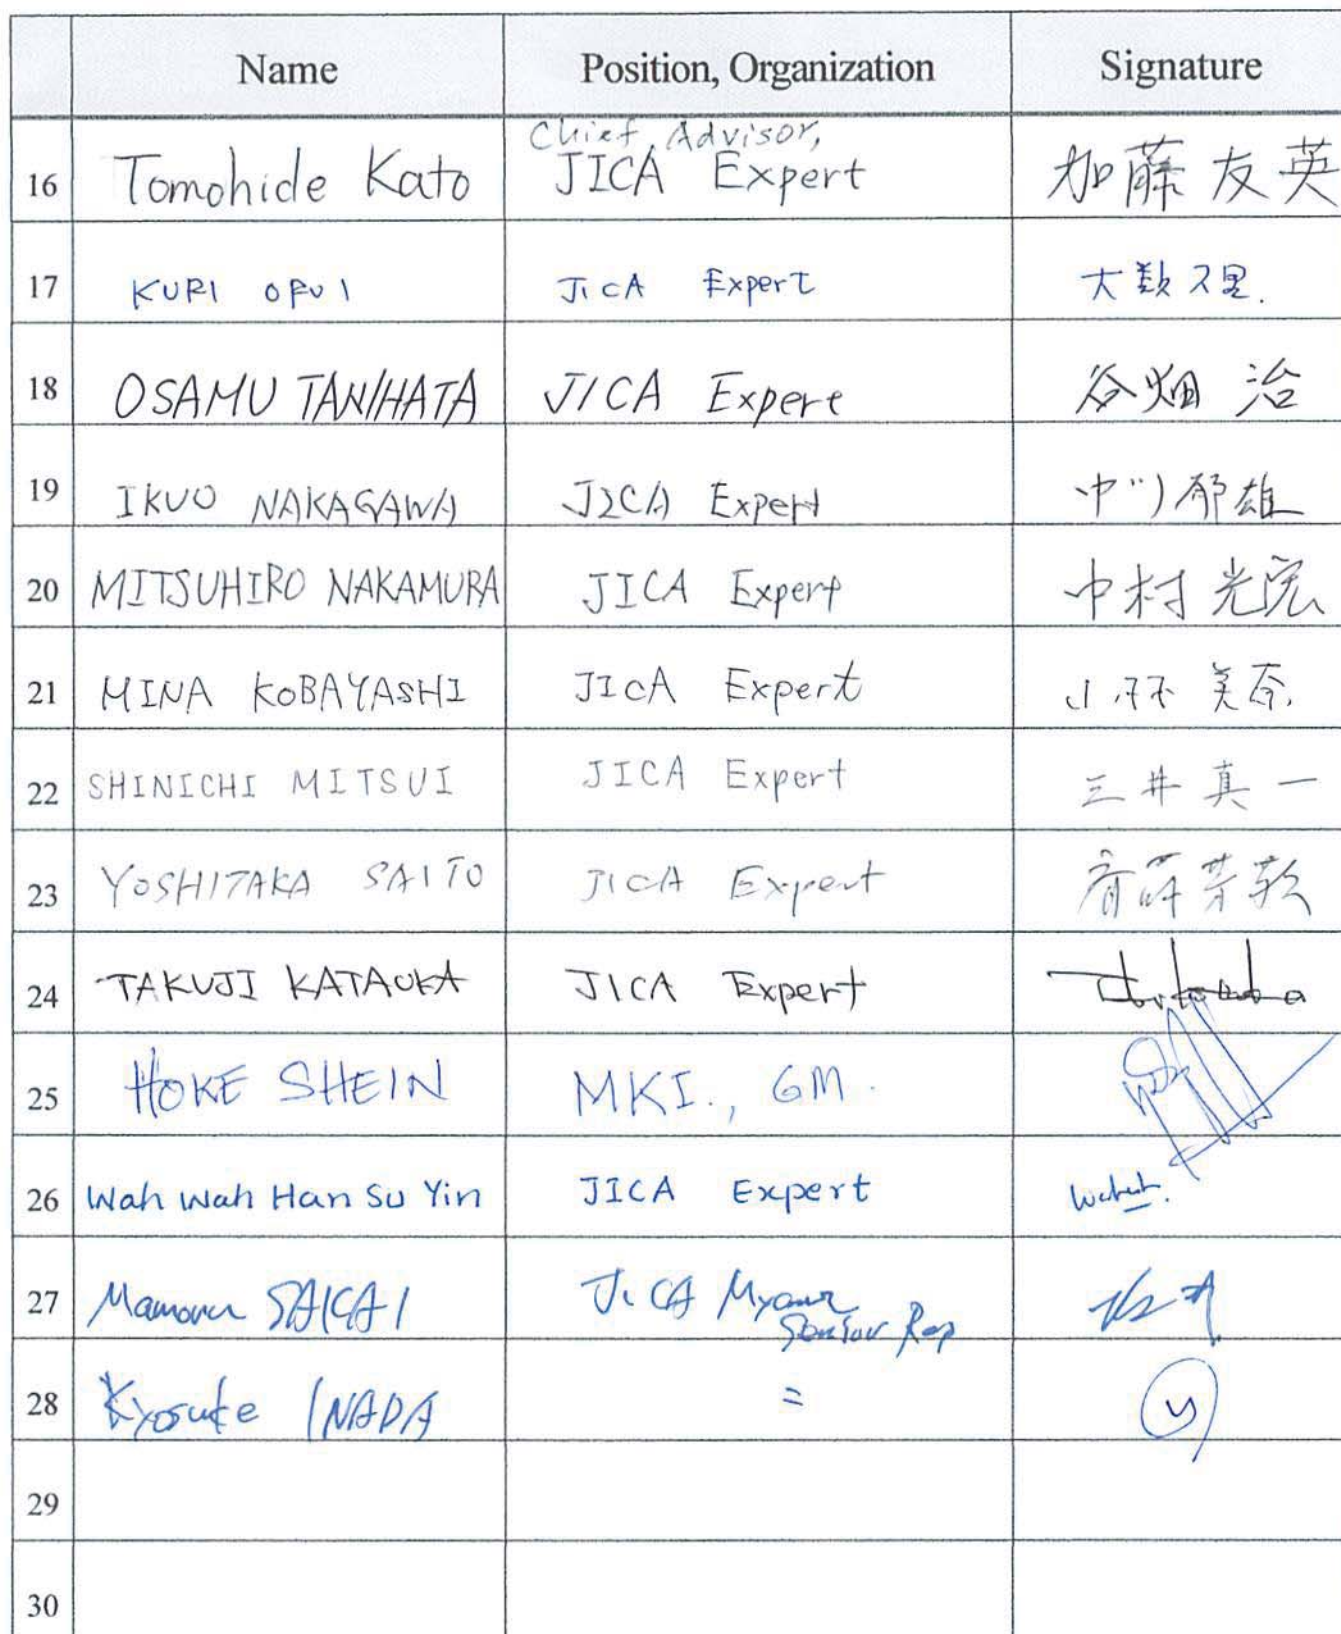 Name Position, Organization Signature
Chief Advisor,
16 Tomohide Kato JICA Expert 加藤友英
17 KURI JICA Expert
18 OSAMU TANIHATA JICA Expert 谷畑 治
19 IKUO NAKAGAWA JICA Expert 中川郁雄
20 MITSUHIRO NAKAMURA JICA Expert 中村光宏
21 MINA KOBAYASHI JICA Expert 小林 美奈
22 SHINICHI MITSUI JICA Expert 三井真一
23 YOSHITAKA SAITO JICA Expert
24 TAKUJI KATAOKA JICA Expert
25 HOKE SHEIN MKI., GM.
26 Wah Wah Han Su Yin JICA Expert
27 SAKAI JICA
28 Kyosuke INADA =
29
30